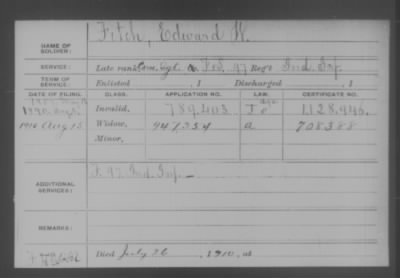 NAME OF SOLDIER: Fitch, Edward W.
SERVICE: Late rank Com. Sgt. Co. F&S, 97 Reg't Ind. Inf.
TERM OF SERVICE: Enlisted , 1 Discharged , 1
DATE OF FILING. CLASS. APPLICATION NO. LAW. CERTIFICATE NO.
Invalid, 789.403 1.128.946.
1910 Aug 15 Widow, 947.354 a 708388
Minor,
ADDITIONAL SERVICES: F. 97 Ind. Inf.
REMARKS:
Died July 26, 1910, at